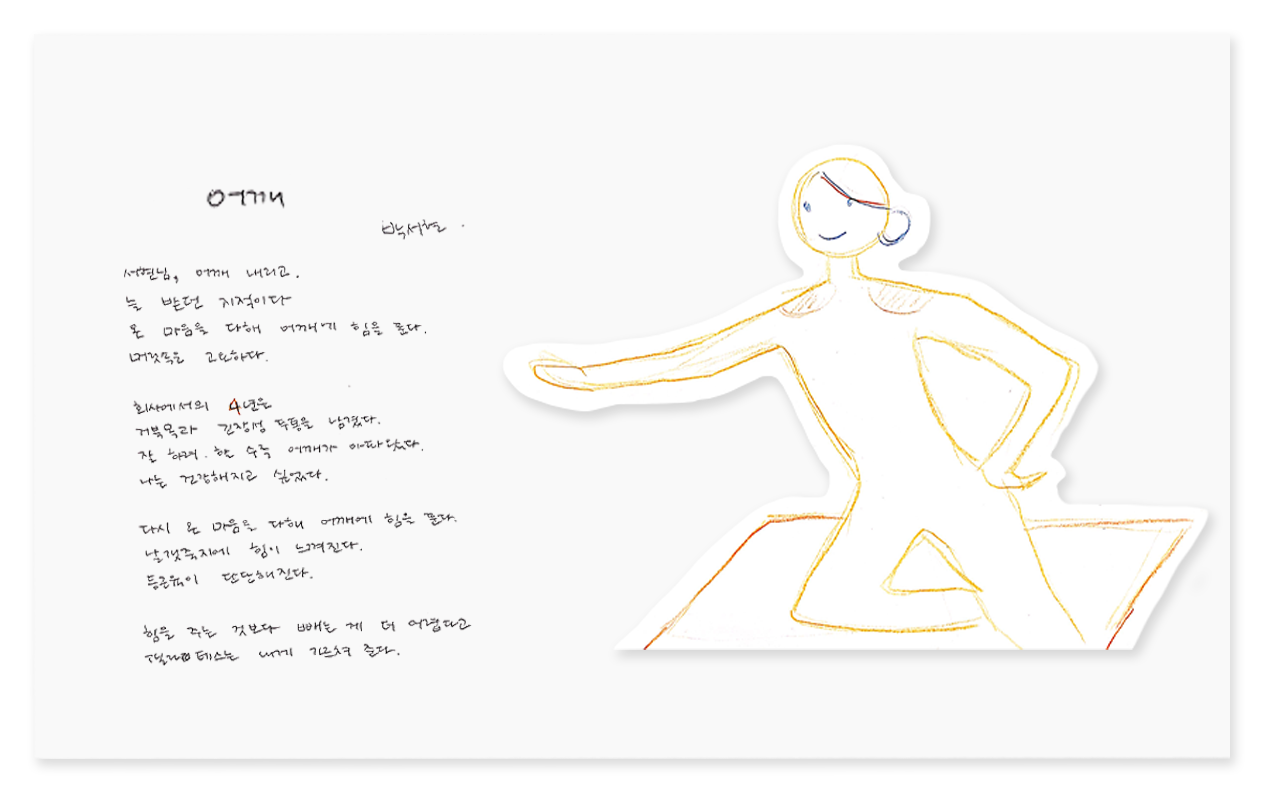 어깨
박서현.
서현님, 어깨 내리고.
늘 받던 지적이다
온 마음을 다해 어깨에 힘을 푼다.
머릿속은 고요하다.
회사에서의 4년은
거북목과 긴장성 두통을 남겼다.
잘 하려. 할 수록 어깨가 아파왔다.
나는 건강해지고 싶었다.
다시 온 마음을 다해 어깨에 힘을 푼다.
날갯죽지에 힘이 느껴진다.
등근육이 단단해진다.
힘을 주는 것보다 빼는 게 더 어렵다고
필라테스는 내게 가르쳐 준다.